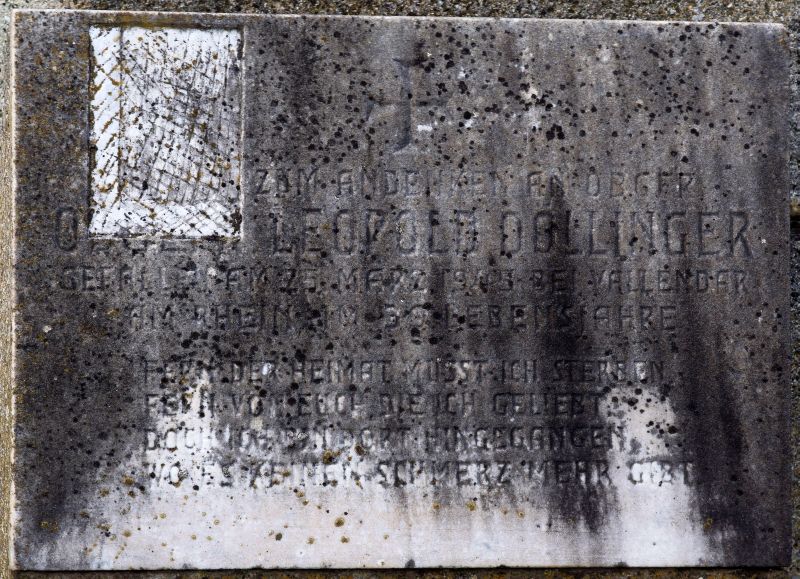 ZUM ANDENKEN AN
LEOPOLD DOLLINGER
GEFALLEN AM MÄRZ BEI VALLENDAR
AM RHEIN IM LEBENSJAHRE
FERN DER HEIMAT MUSST ICH STERBEN
FERN VON EUCH DIE ICH GELIEBT
DOCH ICH BIN DORT HINGEGANGEN
WO ES KEINEN SCHMERZ MEHR GIBT